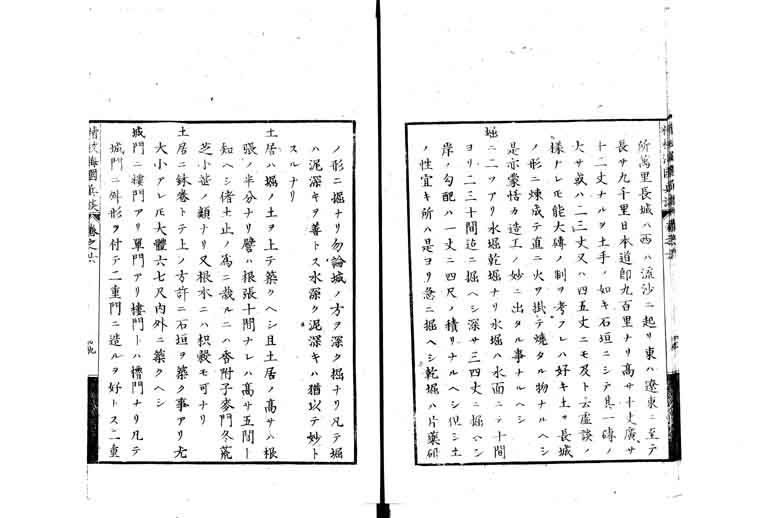 所萬里長城ハ西ハ流沙ニ起リ東ハ遼東ニ至テ
長サ九千里日本道卽九百里ナリ髙サ十丈廣サ
十二丈ナルヲ土手ノ如キ石垣ニシテ其一磚ノ
大サ或ハ二三丈又ハ四五丈ニモ及ト云虚談ノ
樣ナレモ能大磚ノ制ヲ考フレハ好キ土ヲ長城
ノ形ニ煉成テ直ニ火ヲ掛テ燒タル物ナルヘシ
是亦蒙恬カ造工ノ妙ニ出タル事ナルヘシ
堀ニ二ツアリ水堀乾堀ナリ水堀ハ水面ニテ十間
ヨリ二三十間迄ニ掘ヘシ深サ三四丈ニ掘ヘシ
岸ノ勾配ハ一丈ニ四尺ノ積リナルヘシ但シ土
ノ性宜キ所ハ是ヨリ急ニ掘ヘシ乾堀ハ片薬研
ノ形ニ掘ナリ勿論城ノ方ヲ深ク掘ナリ凡テ堀
ハ泥深キヲ善トス水深ク泥深キハ猶以テ妙ト
スルナリ
土居ハ堀ノ土ヲ上テ築クヘシ且土居ノ髙サハ根
張ノ半分ナリ譬ハ根張十間ナレハ髙サ五間ト
知ヘシ偖土止ノ為ニ栽ルニハ香附子麥門冬荒
芝小笹ノ類ナリ又根水ニハ枳殻モ可ナリ
土居ニ鉢巻トテ上ノ方許ニ石垣ヲ築ク事アリ尤
大小アレモ大體六七尺内外ニ築クヘシ
城門ニ樓門アリ單門アリ樓門トハ櫓門ナリ凡テ
城門ニ舛形ヲ付テ二重門ニ造ルヲ好トス二重
海國兵談 巻之